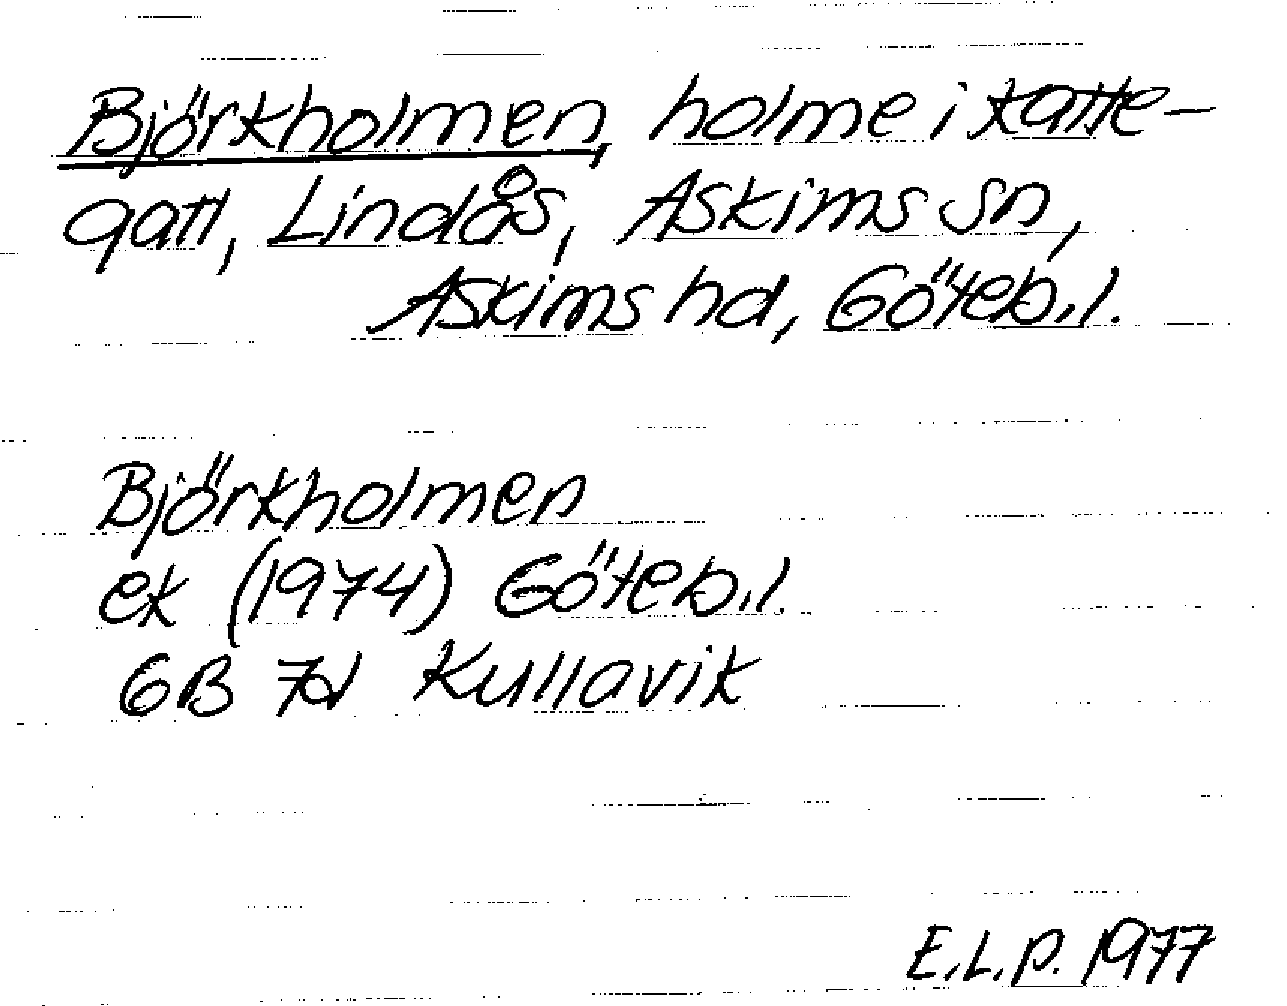 Björkholmen, holme i Katte-
gatt, Lindås, Askims sn,
Askims hd, Göteb.l.
Björkholmen
ek (1974) Göteb.l.
6B 7d Kullavik
E.L.P. 1977